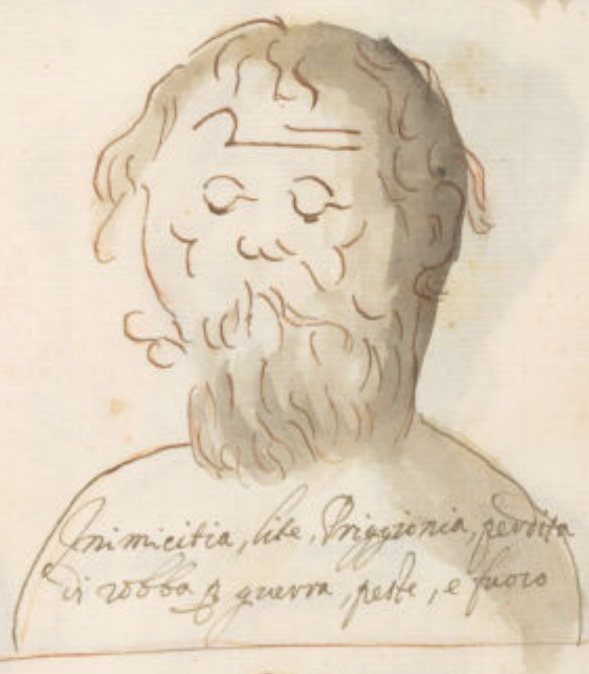 Inimicitia, lite, Priggionia, perdita
di robba p guerra, peste, e fuoco